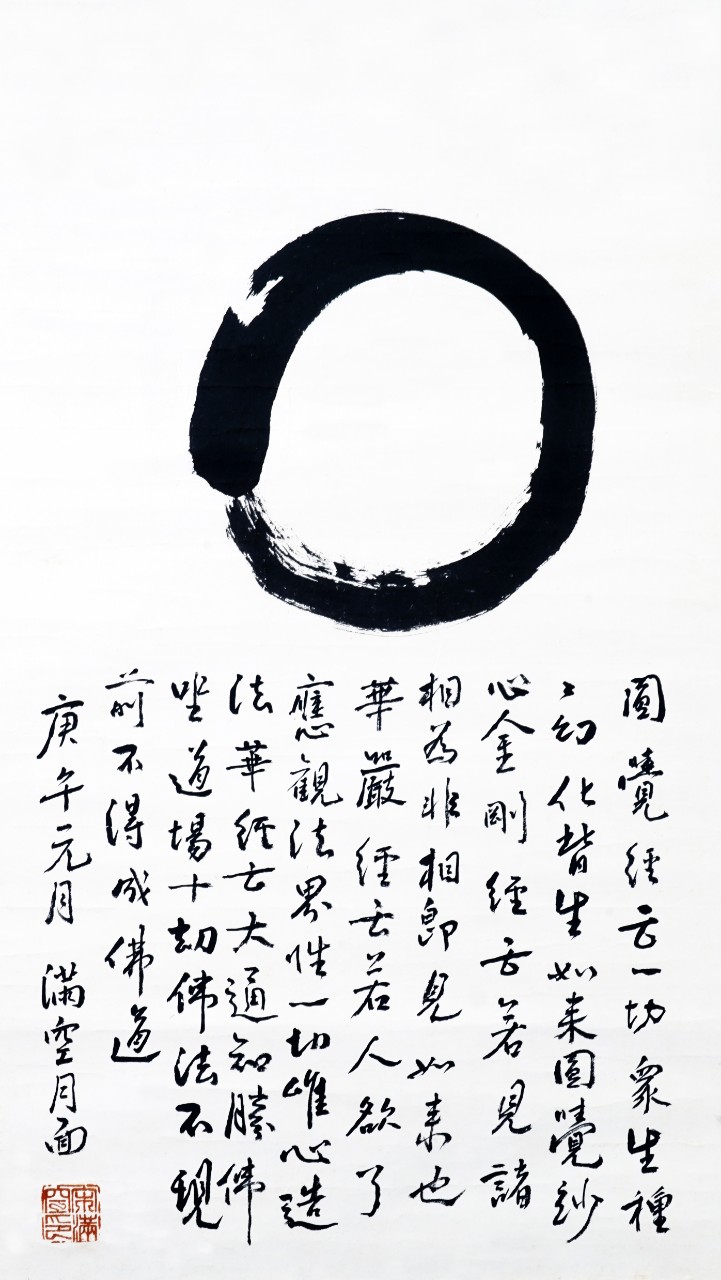 圓覺經云一切衆生種
〻幻化皆生如来圓覺妙
心金剛經云若見諸
相為非相卽見如来也
華嚴經云若人欲了
應觀法界性一切唯心造
法華經云大通知勝佛
坐道場十劫佛法不現
前不得成佛道
庚午元月 滿空月面
宋滿空印